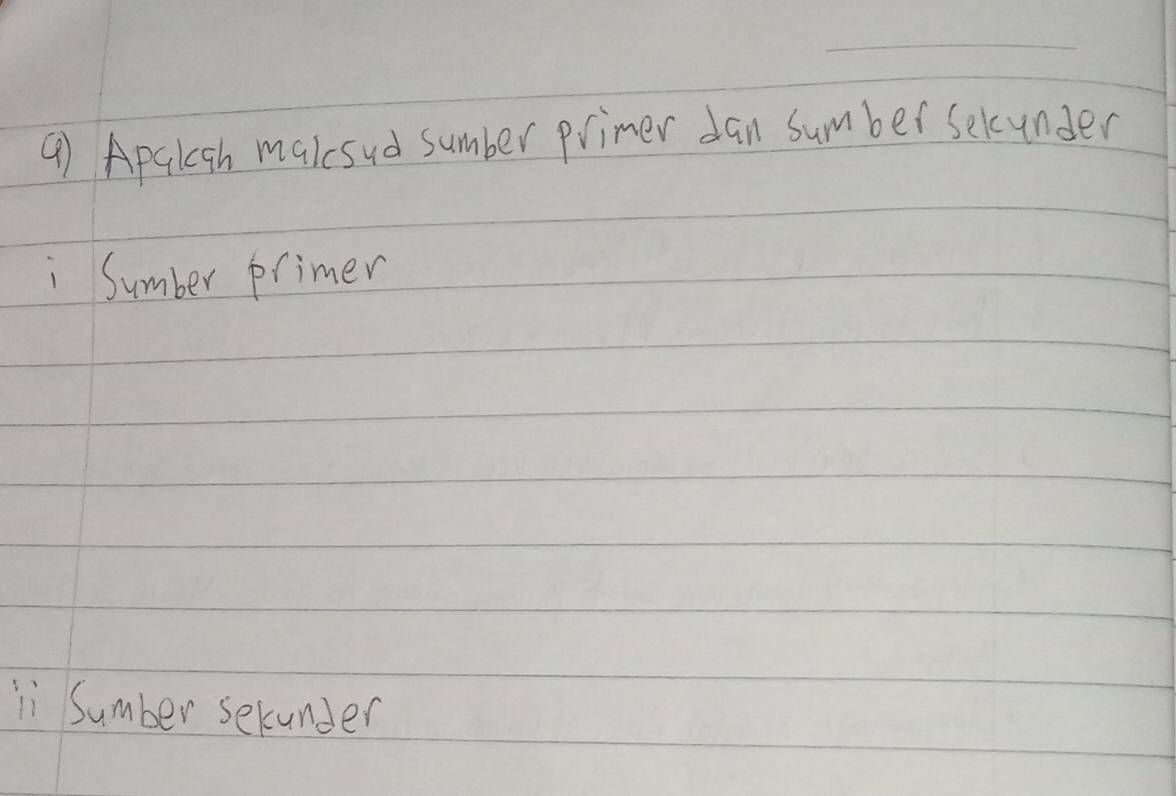 a) Apakah maksud sumber primer dan sumber sekunder
i Sumber primer
ii Sumber sekunder